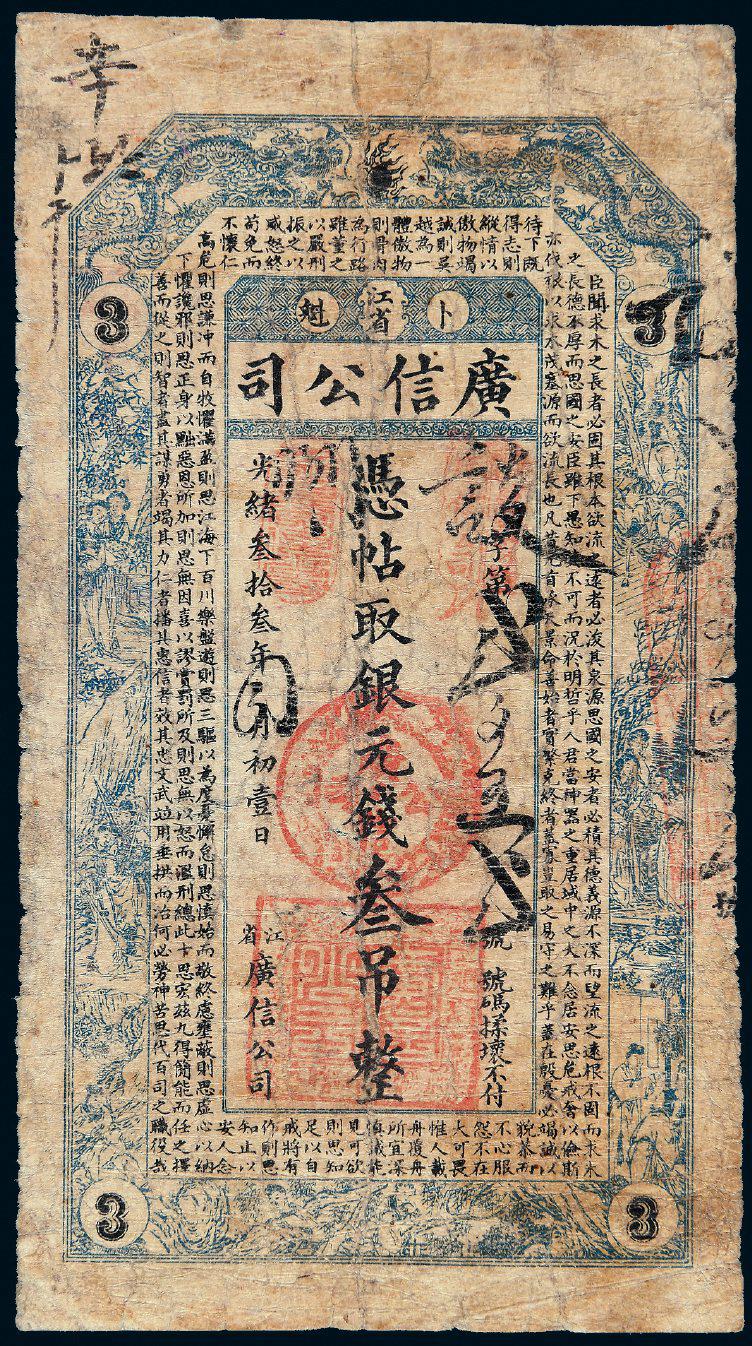 3
3
卜
江省
魁
廣信公司
字第
號
號碼揉壞不付
憑帖取銀元錢叁吊整
光緒叁拾叁年
月初壹日
江省
廣信公司
臣聞求木之長者必固其根本欲流之遠者必浚其泉源思國之安者必積其德義源不深而望流之遠根不固而求木
之長德不厚而思國之安臣雖下愚知其不可而況於明哲乎人君當神器之重居域中之大不念居安思危戒奢以儉斯
亦伐根以求木茂塞源而欲流長也凡昔元首承天景命善始者實繁克終者蓋寡豈取之易守之難乎蓋在殷憂必竭誠以
待下既
得志則
縱情以
傲物竭
誠則吳
越為一
體傲物
則骨肉
為行路
雖董之
以嚴刑
振之以
威怒終
苟免而
不懷仁
貌恭而
不心服
怨不在
大可畏
惟人載
舟覆舟
所宜深
慎誠能
見可欲
則思知
足以自
戒將有
作則思
知止以
安人念
高危則思謙冲而自牧懼滿盈則思江海下百川樂盤遊則思三驅以為度憂懈怠則思慎始而敬終慮壅蔽則思虛心以納
下懼讒邪則思正身以黜惡恩所加則思無因喜以謬賞罰所及則思無以怒而濫刑總此十思宏茲九得簡能而任之擇
善而從之則智者盡其謀勇者竭其力仁者播其惠信者效其忠文武並用垂拱而治何必勞神苦思代百司之職役哉
3
3